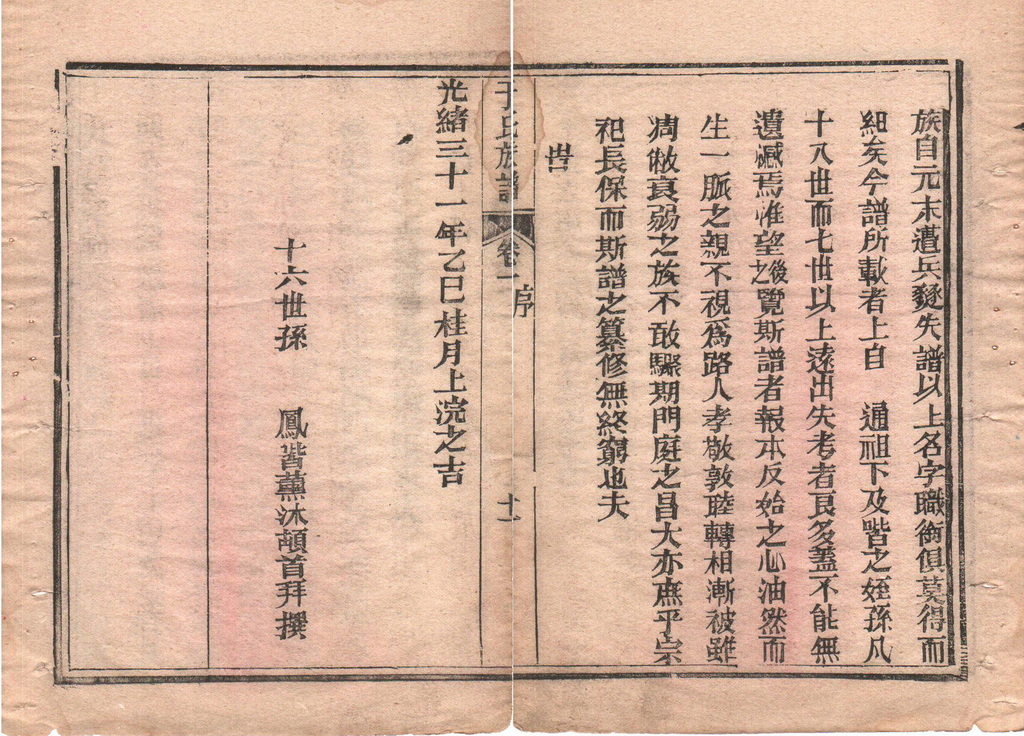 族自元末遭兵燹失譜以上名字職銜俱莫得而
紀矣今譜所載者上自　通祖下及喈之姪孫凡
十八世而七世以上遠出失考者良多蓋不能無
遺憾焉惟望後之覽斯譜者報本反始之心油然而
生一脈之親不視爲路人孝敬敦睦轉相漸被雖
凋敝衰弱之族不敢驟期門庭之昌大亦庶乎宗
祀長保而斯譜之纂修無終窮也夫
旹
于氏族譜　卷一　序　十一
光緒三十一年乙巳桂月上浣之吉
十六世孫　鳳喈薰沐頓首拜撰